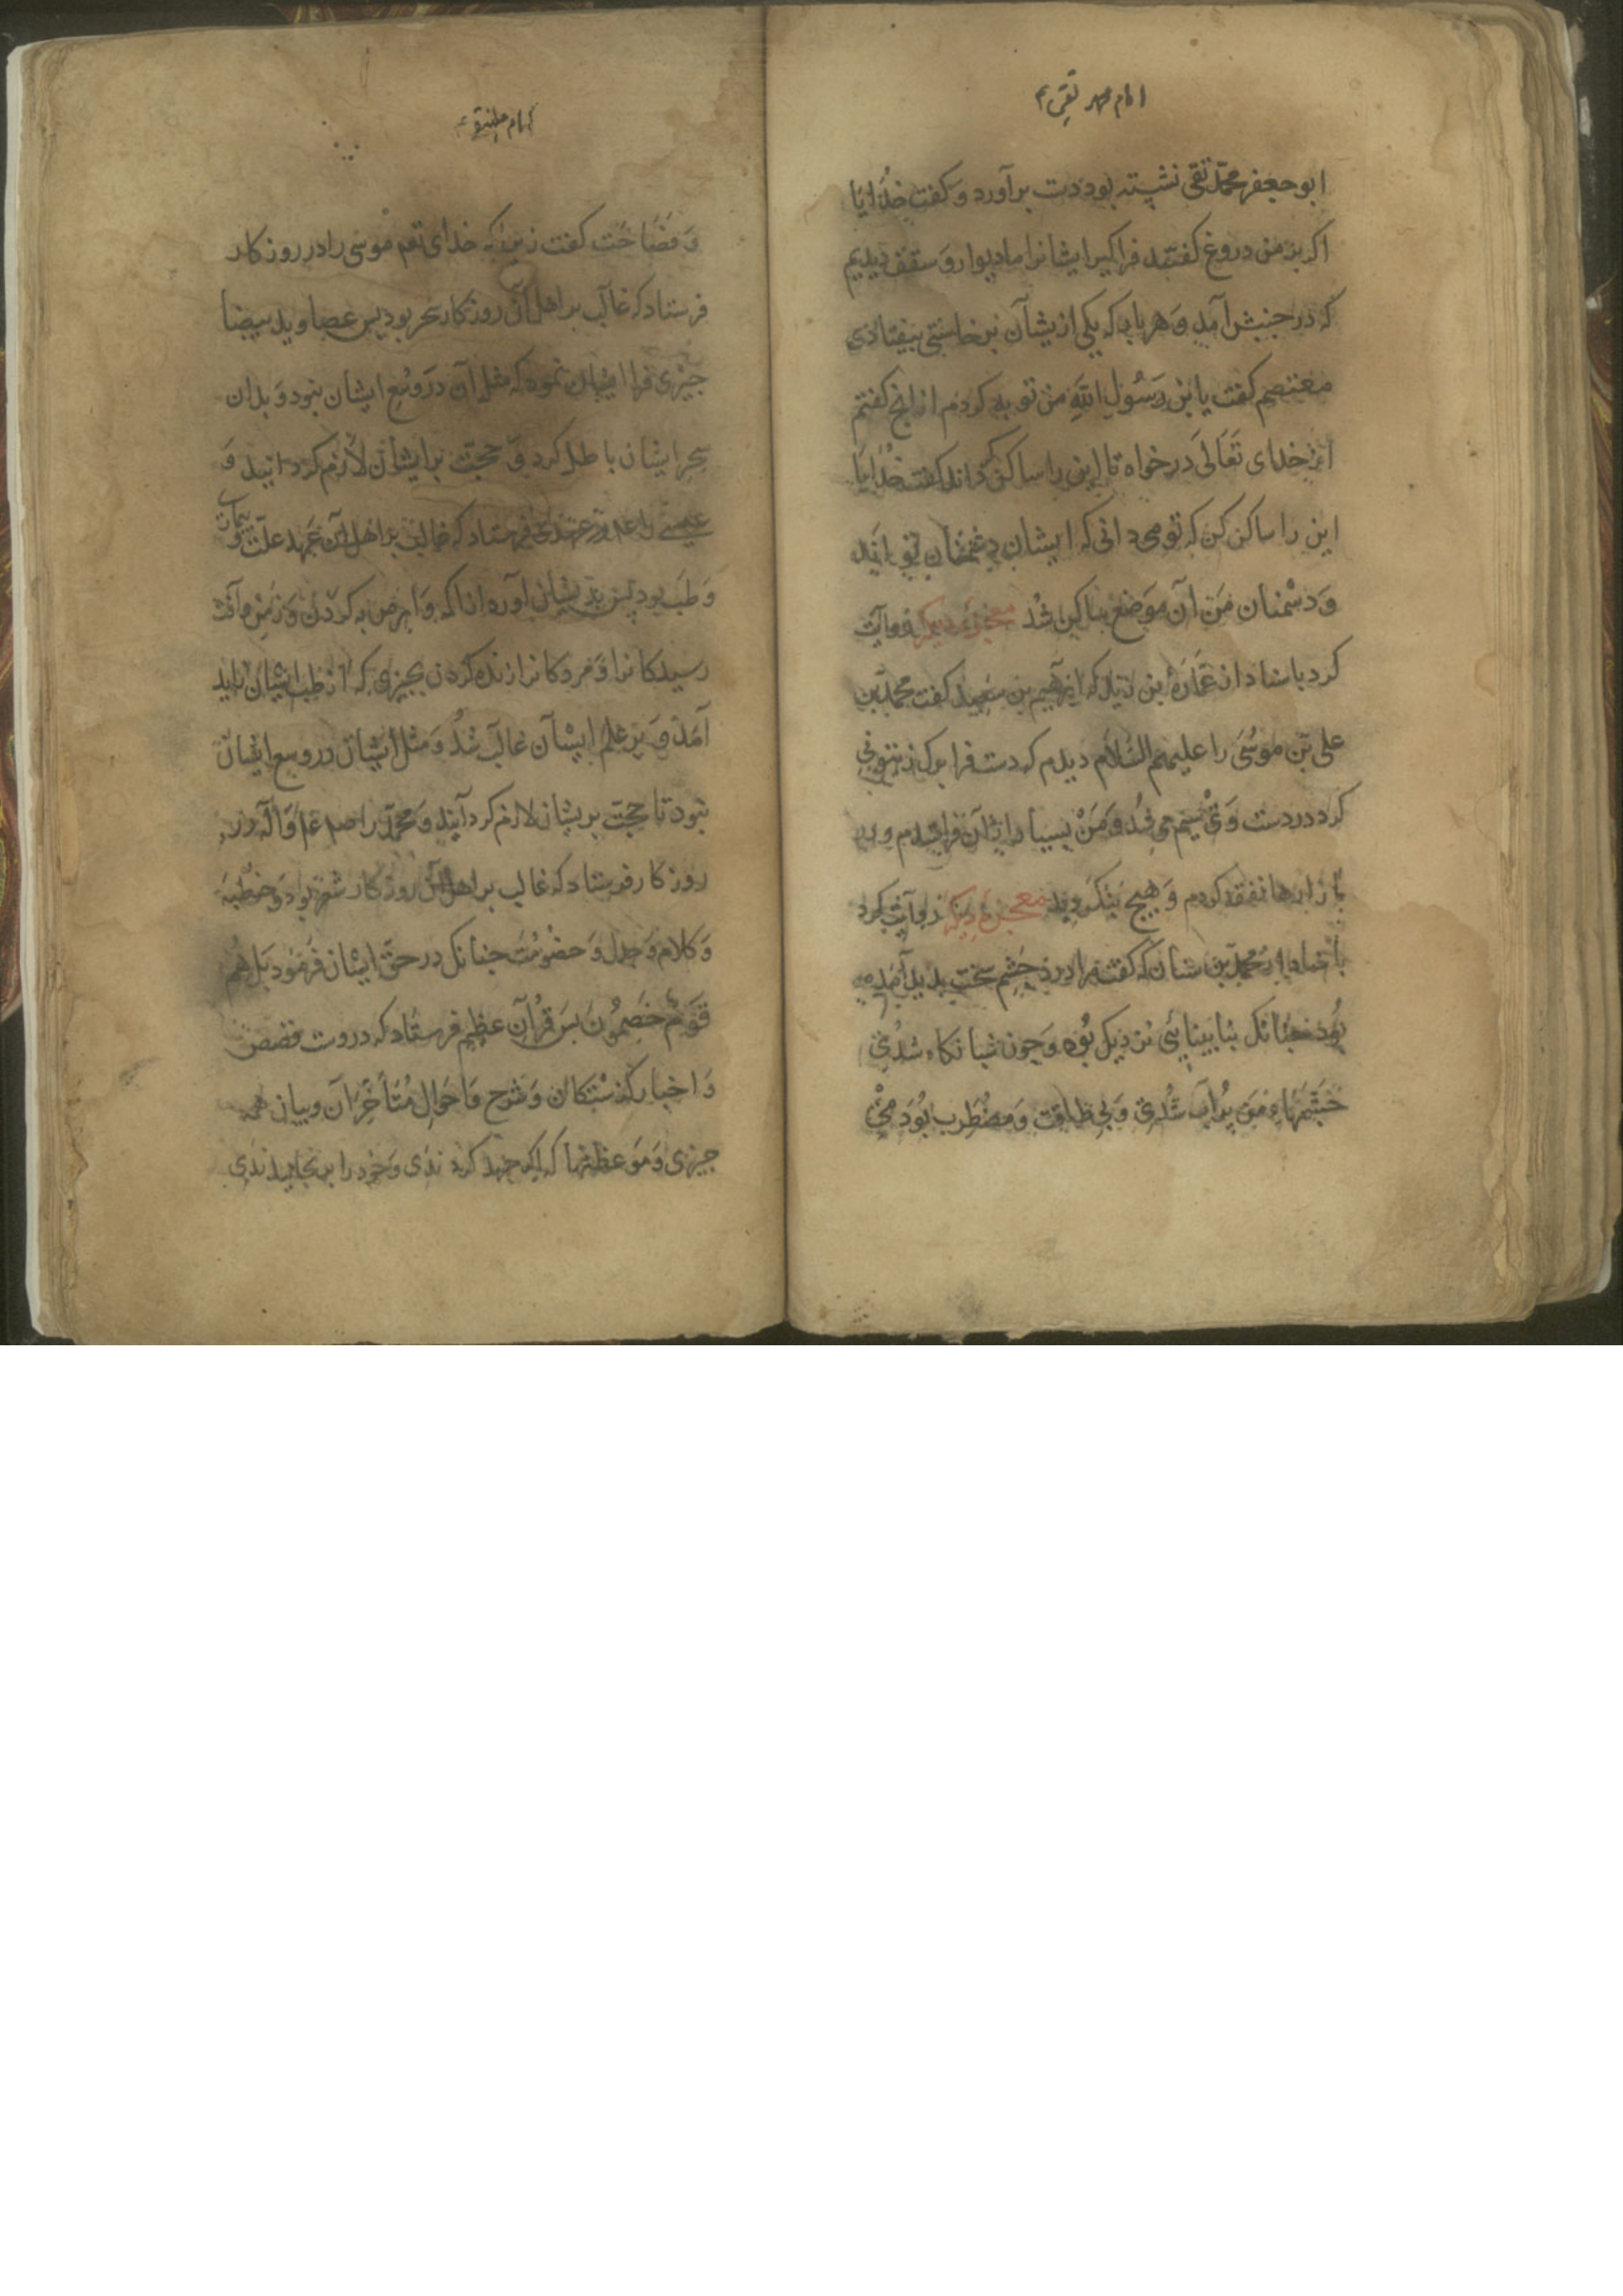 امام محمد تقی ع
ابو جعفر محمّد تقی نشسته بود دست برآورد و کفت خدایا
اکر بر من دروغ کفتند فراکیر ایشانرا ما دیوار و سقف دیدیم
که در جنبش آمد و هر باب که یکی از یشان بر خاستی بیفتادی
معتصم کفت یا بن رسول الله من توبه کردم از انچ کفتم
از خدای تعالی درخواه تا این را ساکن کرداند کفت خدایا
این را ساکن کن که تو می دانی که ایشان دشمنان تو اند
و دشمنان من آن موضع ساکن شد معجزه دیکر روایت
کرد باسناد از عمارة بن زید که ابرهیم بن سعید کفت محمد بن
علی بن موسی را علیهم السلام دیدم که دست فرا برک زیتونی
کرد در دست وی سیم می شد و من بسیار از آن فراستدم و در
بازارها نفقه کردم و هیچ بنکردید معجزه دیکر روایت کرد
باسناد از محمد بن سنان که کفت مرا درد چشم سخت پدید آمده
بود چنانک بنابینائی نزدیک بود و چون شبانکاه شدی
چشمهاء من پر آب شدی و بی طاقت و مضطرب بود می
امام علینقی ع
و فصاحت کفت زیرا که خدای تعم موسی را در روزکار
فرستاد که غالب بر اهل آن روزکار سحر بود پس عصا و ید بیضا
چیزی فرا ایشان نمود که مثل آن در وسع ایشان نبود و بدان
سحر ایشان باطل کرد و حجت بر ایشان لازم کردانید و
عیسی را علم در عهدی فرستاد که غالب بر اهل آن عهد علت
و طب بود پس بدیشان آورد از اکمه و ابرص به کردن و زمن و آفت
رسیدکانرا و مردکانرا زنده کردن بچیزی که از طب ایشان پدید
آمد و بر علم ایشان غالب شد و مثل ایشان در وسع ایشان
نبود تا حجت بریشان لازم کردانید و محمد را صلم علم و آله در
روزکار فرستاد که غالب بر اهل آن روزکار شعر بود و خطبه
و کلام و جدل و خصومت چنانک در حق ایشان فرمود بل هم
قوم خصمون پس قرآن عظیم فرستاد که دروست قصص
و اخبار کذشتکان و شرح و احوال متأخران و بیان همه
چیزی و موعظتها که اکر جهد کردندی و خود را برنجانیدندی